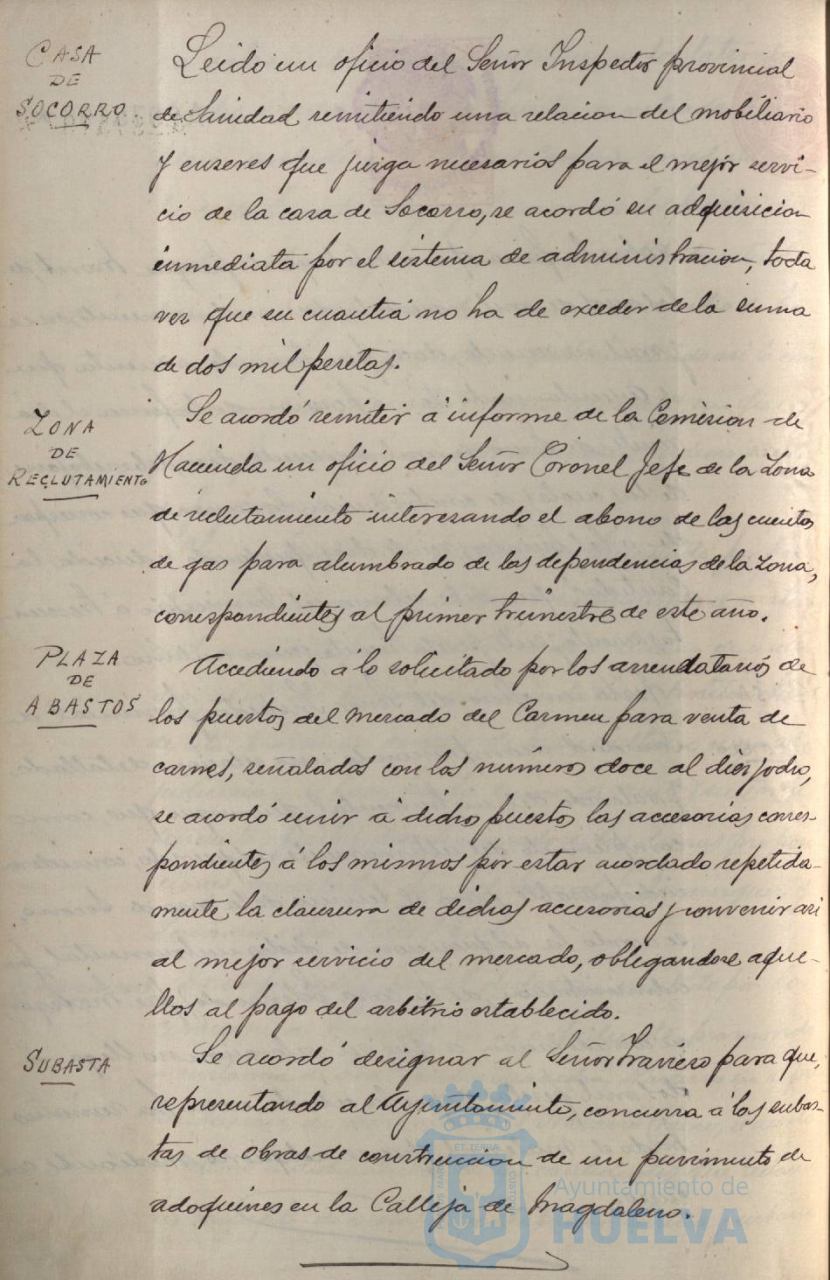 CASA
DE
SOCORRO
Leido un oficio del Señor Inspector provincial
de Sanidad remitiendo una relacion del mobiliario
y enseres que juzga necesarios para el mejor servi-
cio de la casa de Socorro, se acordó su adquisicion
inmediata por el sistema de administracion, toda
vez que su cuantia no ha de exceder de la suma
de dos mil pesetas.
ZONA
DE
RECLUTAMIENTO
Se acordó remitir á informe de la Comision de
Hacienda un oficio del Señor Coronel Jefe de la Zona
de reclutamiento interesando el abono de las cuentas
de gas para alumbrado de las dependencias de la Zona,
correspondientes al primer trimestre de este año.
PLAZA
DE
ABASTOS
Accediendo á lo solicitado por los arrendatarios de
los puestos del mercado del Carmen para venta de
carnes, señalados con los números doce al diez y ocho,
se acordó unir á dichos puestos las accesorias corres-
pondientes á los mismos por estar acordado repetida-
mente la clausura de dichas accesorias y convenir asi
al mejor servicio del mercado, obligandose aque-
llos al pago del arbitrio establecido.
SUBASTA
Se acordó designar al Señor Traviero para que,
representando al Ayuntamiento, concurra á las subas-
tas de obras de construccion de un pavimento de
adoquines en la Calleja de Magdaleno.
Ayuntamiento de
HUELVA